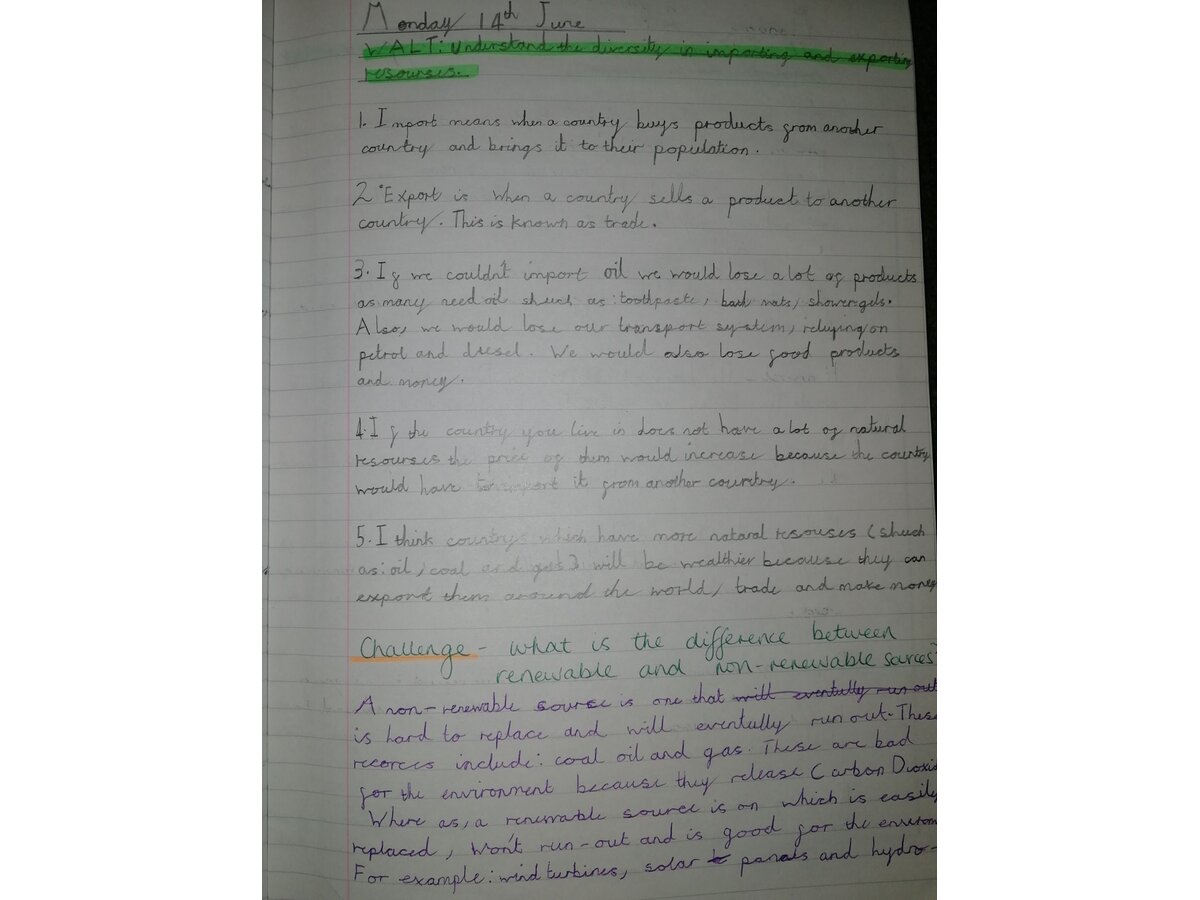 Monday 14th June
WALT: Understand the diversity in importing and exporting
resourses.
1. Import means when a country buys products from another
country and brings it to their population.
2. Export is when a country sells a product to another
country. This is known as trade.
3. If we couldn't import oil we would lose a lot of products
as many need oil shuch as: toothpaste, bath mats, shower gels.
Also, we would lose our transport system, relying on
petrol and diesel. We would also lose good products
and money.
4. If the country you live in does not have a lot of natural
resourses the price of them would increase because the country
would have to import it from another country.
5. I think countrys which have more natural resouses (shuch
as: oil, coal and gas) will be wealthier because they can
export them around the world, trade and make money
Challenge - what is the difference between
renewable and non-renewable sources
A non-renewable source is one that will eventully run out
is hard to replace and will eventully run out. These
recorces include: coal oil and gas. These are bad
for the environment because they release Carbon Dioxi
Where as, a renewable source is on which is easily
replaced, won't run-out and is good for the environm
For example: wind turbines, solar panals and hydro-